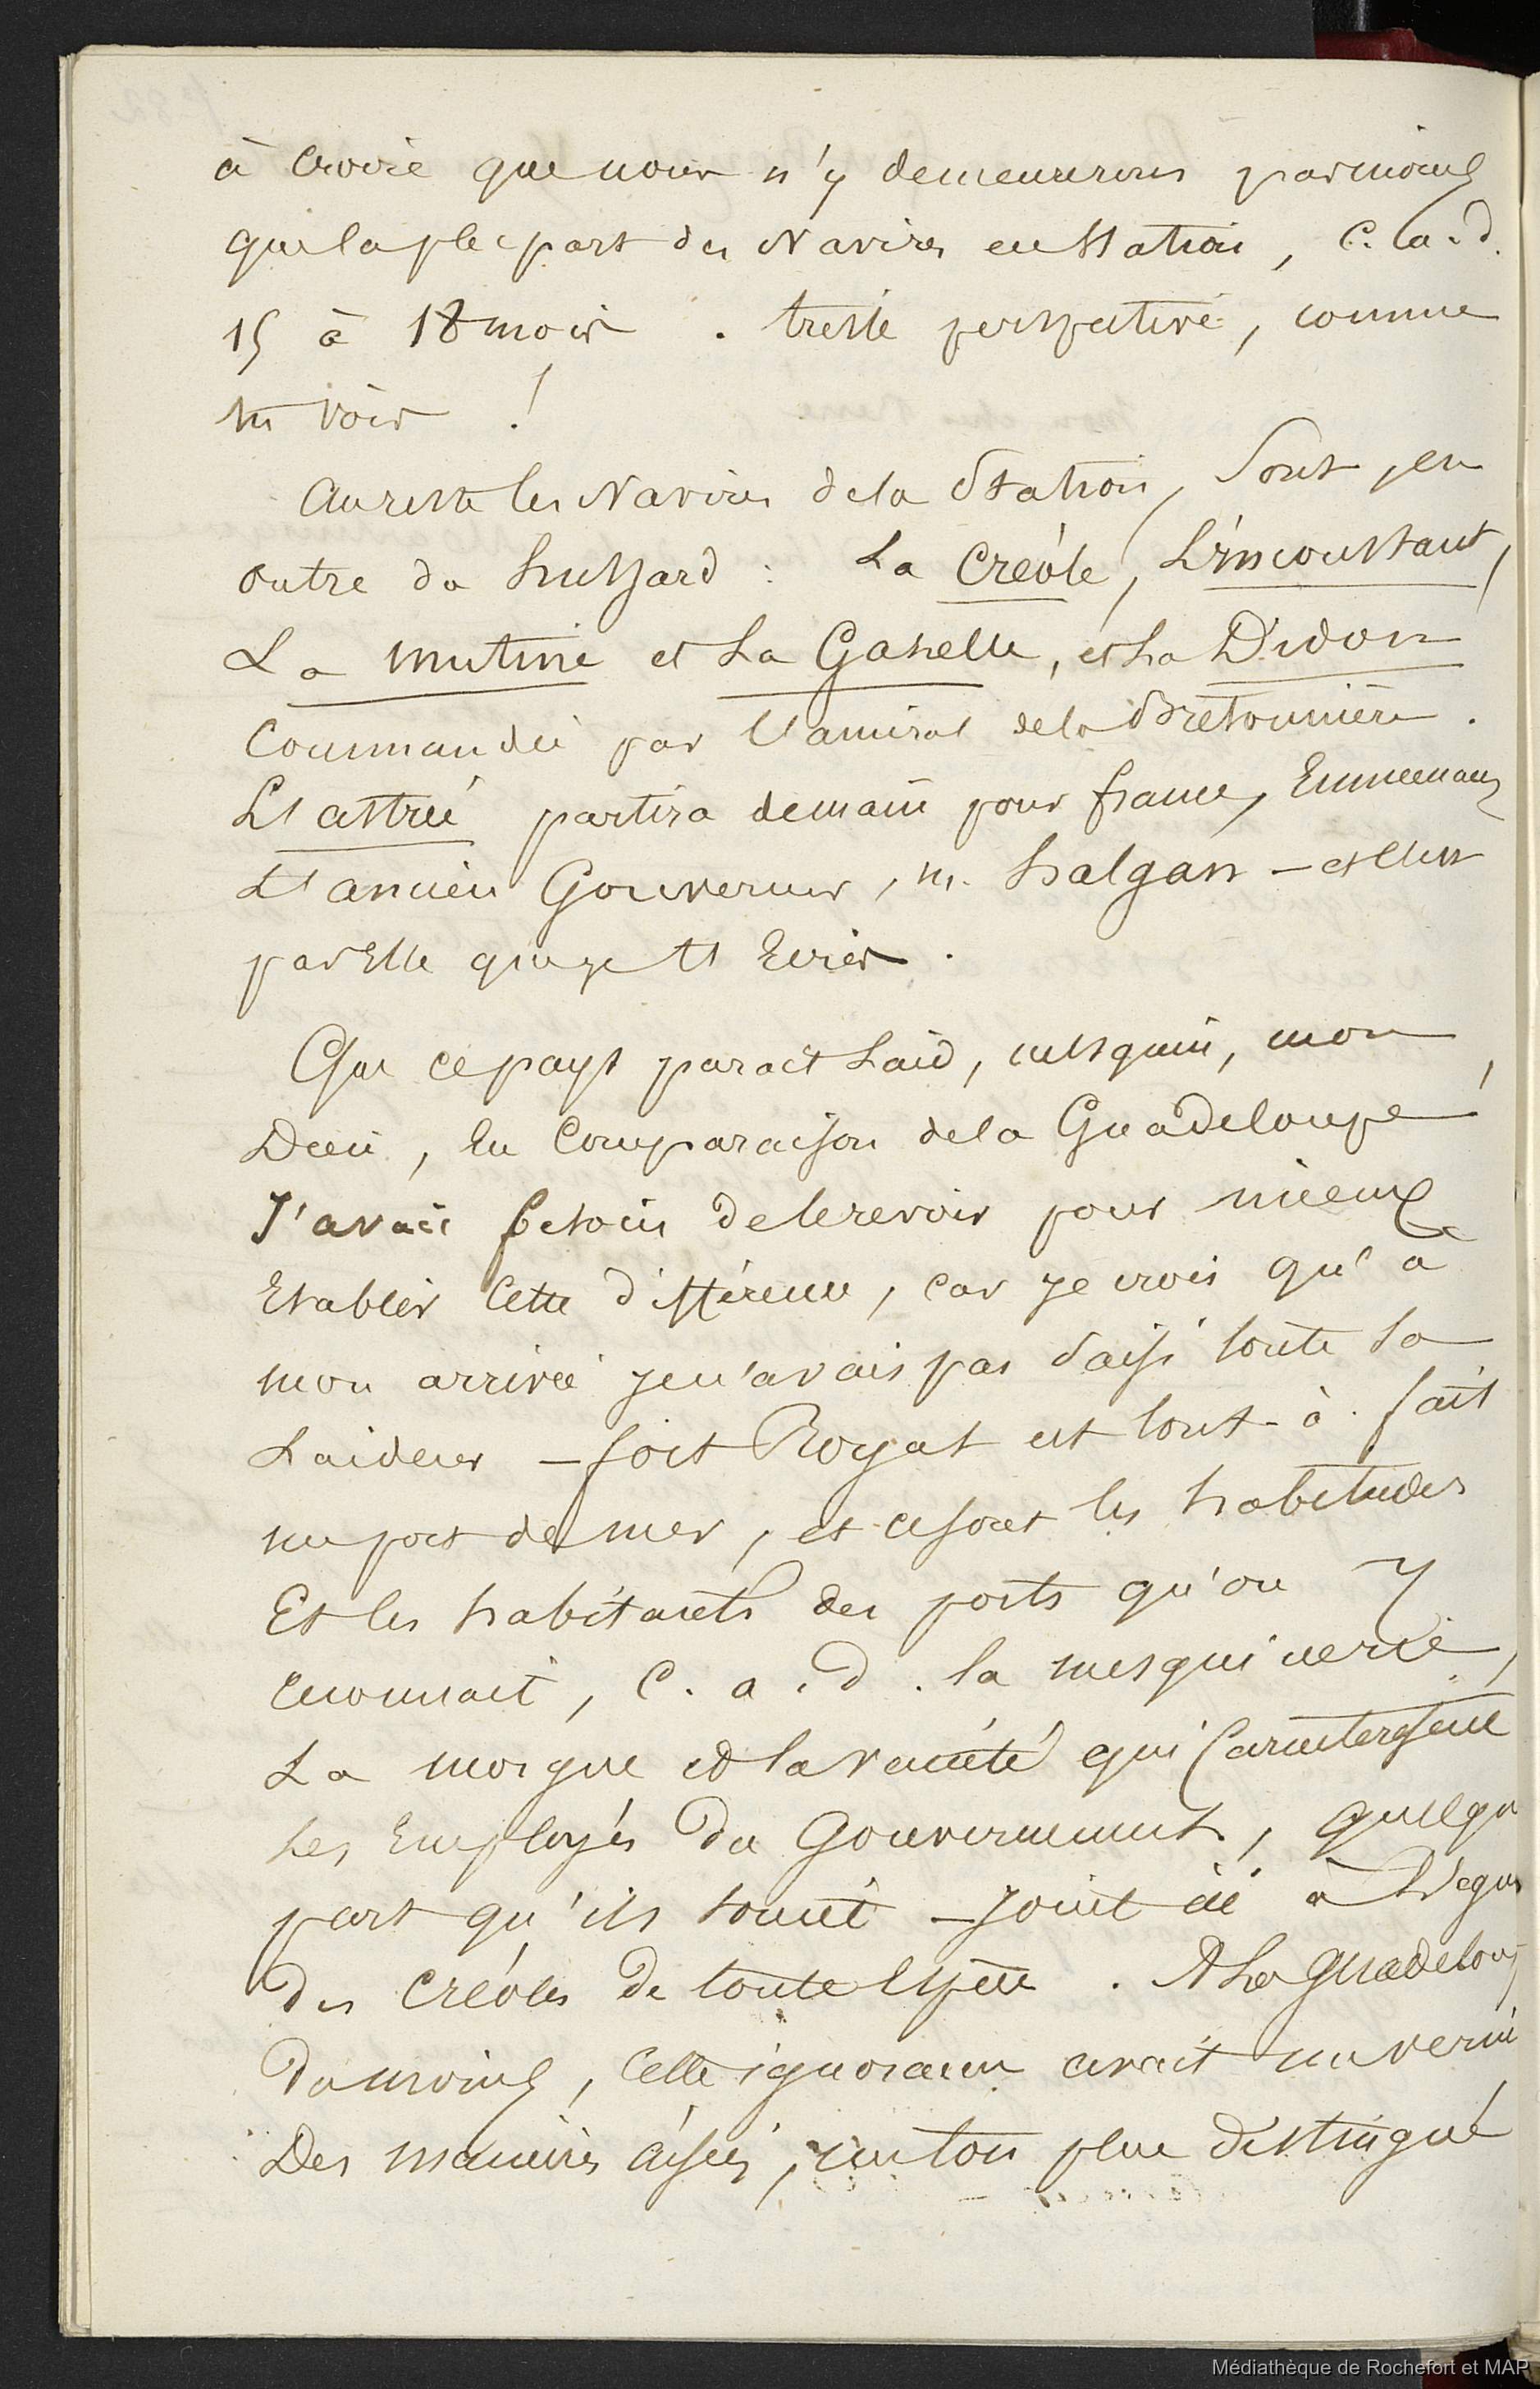 à croire que nous n'y demeurerons pas moins
que la plupart des Navires en station, c. à. d.
15 à 18 mois. triste perspective, comme
tu vois !
Au reste les Navires de la Station, sont, en
outre du hussard : La Créole, L'inconstant,
La mutine et La Gazelle, et La Didon
Commandée par l'amiral de la Bretonnière.
L'astrée partira demain pour france, Emmenant
L'ancien Gouverneur, m. halgan – et c'est
par Elle que je t'Ecris.
Que ce pays parait Laid, mesquin, mon
Dieu, En Comparaison de la Guadeloupe,
J'avais besoin de le revoir pour mieux
Etablir Cette différence, car je crois qu'à
mon arrivée je n'avais pas saisi toute sa
Laideur – fort Royal est tout-à-fait
un port de mer, et ce sont les habitudes
Et les habitants des ports qu'on y
reconnait, C. a. d. la mesquinerie,
La morgue et la vanité qui Caractérisent
les Employés du Gouvernement, quelque
part qu'ils soient – joint à
des créoles de toute Espèce. A La Guadeloupe
du moins, Cette ignorance avait un vernis
Des manières aisées, un ton plus distingué
Médiathèque de Rochefort et MAP